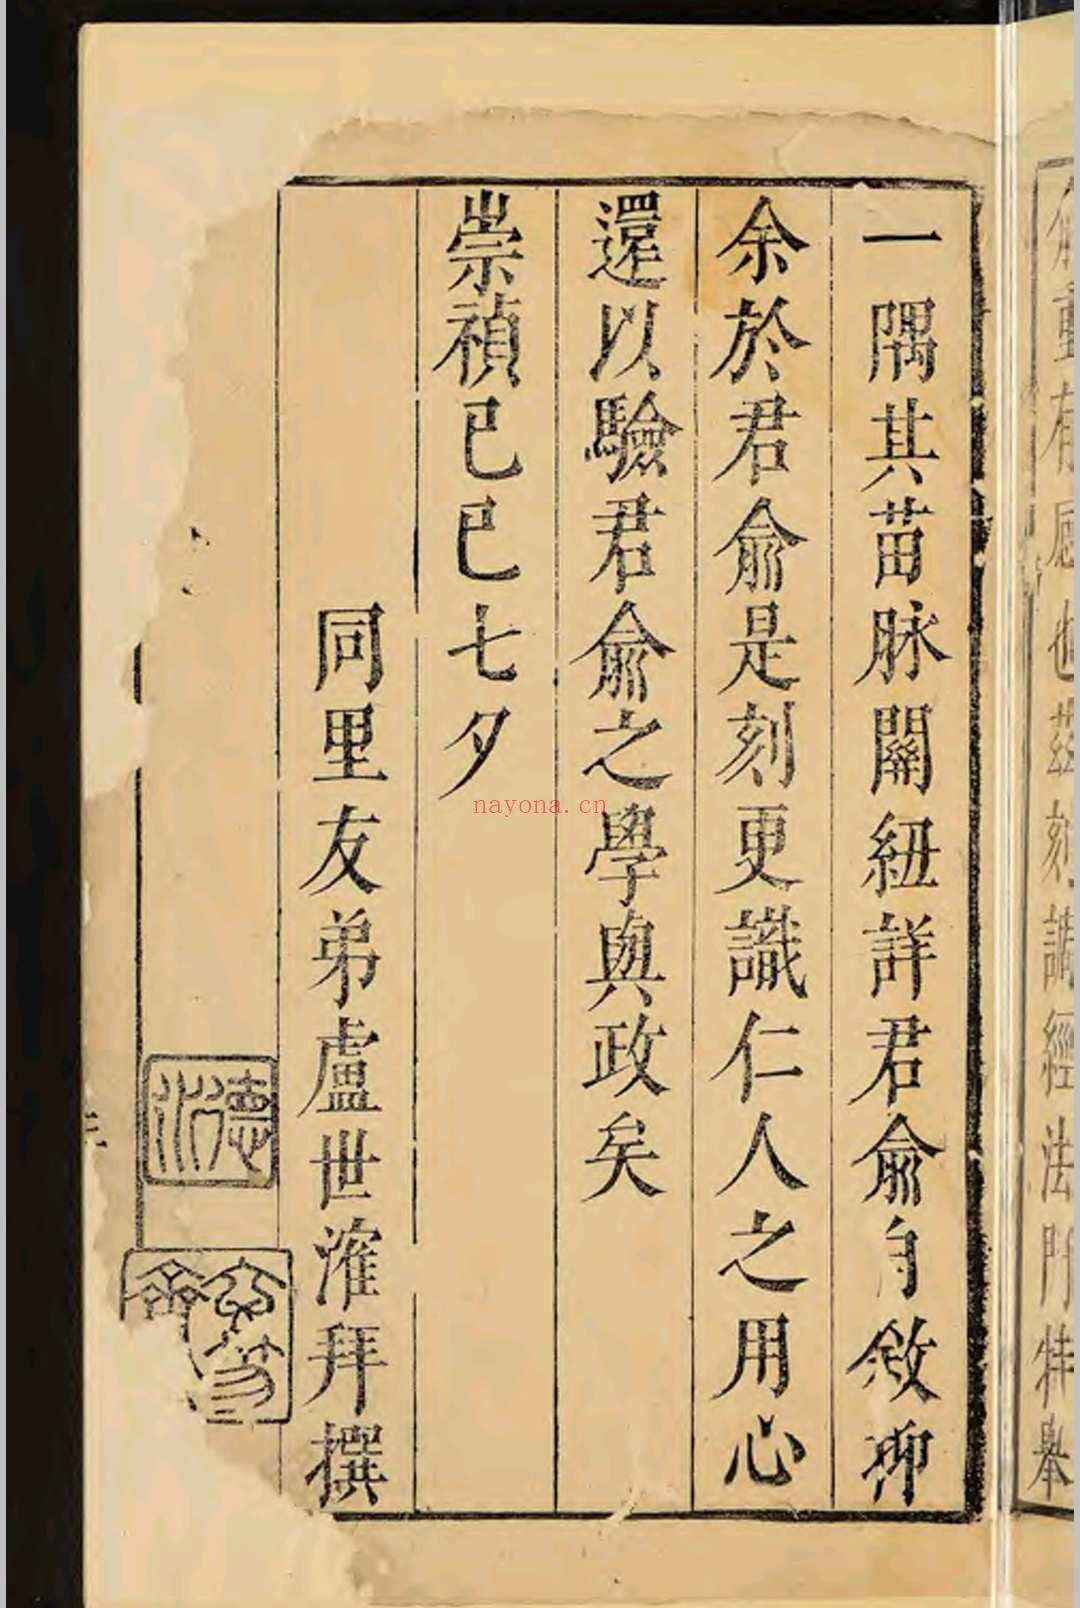 有
也茲刻調經法門特舉
一隅其苗脉關紐詳君俞自敘抑
余於君俞是刻更識仁人之用心
還以驗君俞之學與政矣
崇禎己巳七夕
同里友弟盧世㴶拜撰
德水
nayona.cn